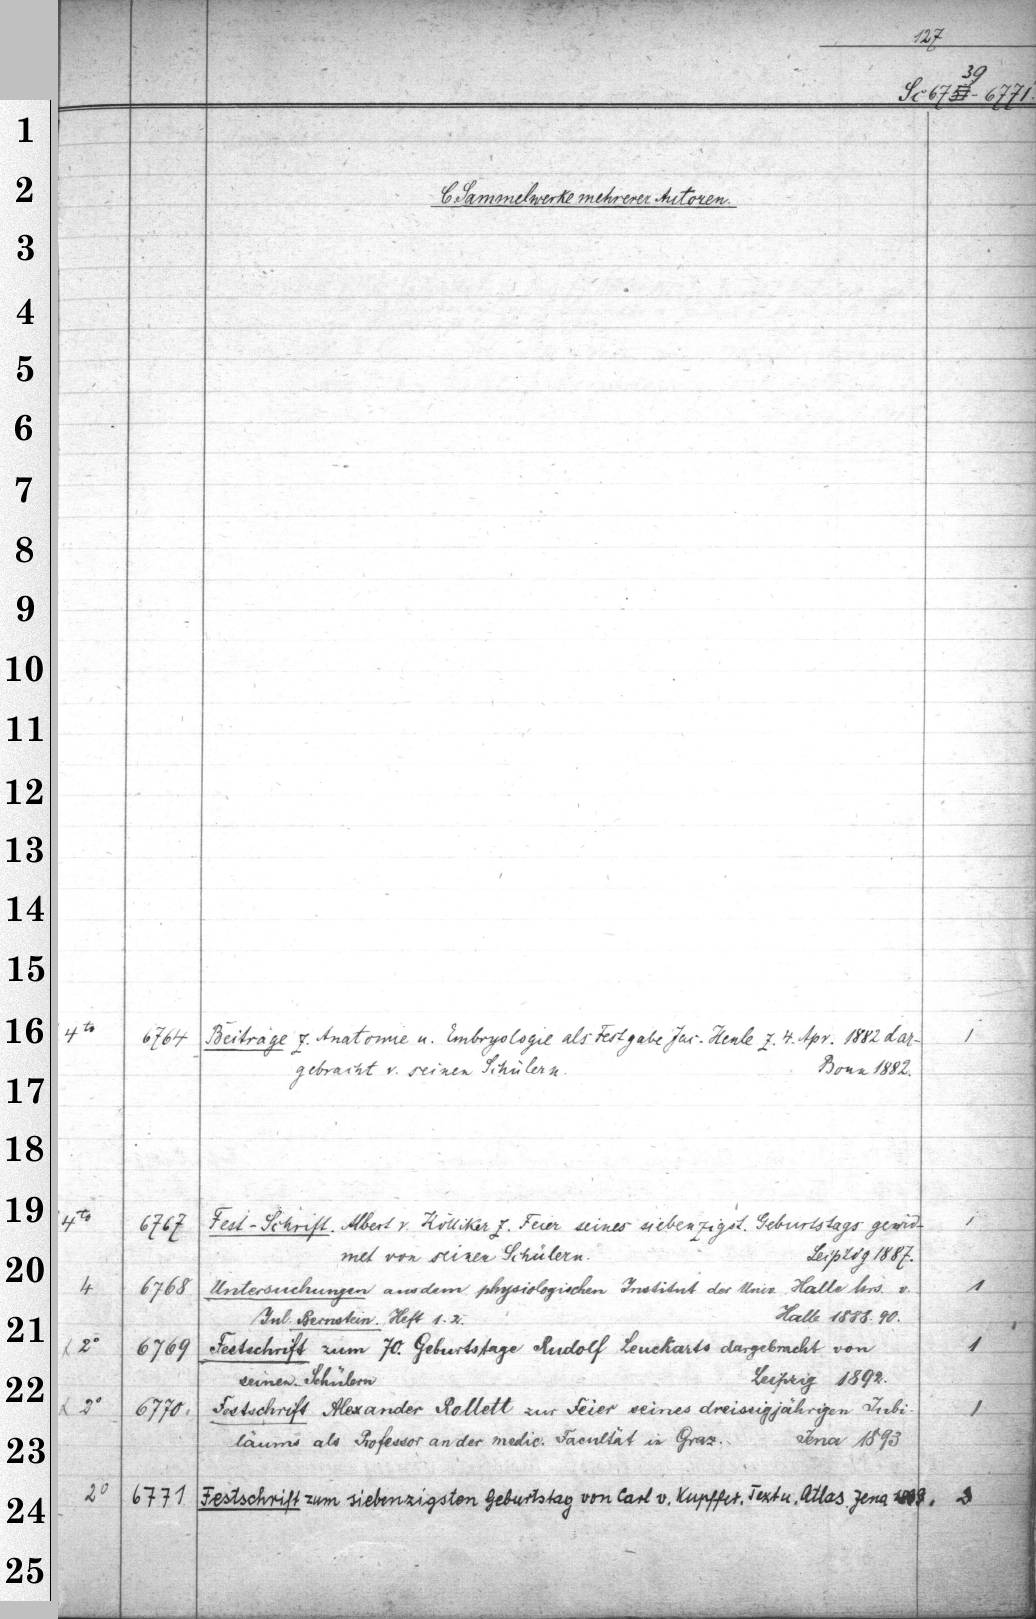 127
39
Sc 67 - 6771.
1
2 C Sammelwerke mehrerer Autoren.
3
4
5
6
7
8
9
10
11
12
13
14
15
16 4to 6764 Beiträge z. Anatomie u. Embryologie als Festgabe Jac. Henle z. 4. Apr. 1882 dar- 1
gebracht v. seinen Schülern. Bonn 1882.
17
18
19 4to 6767 Fest-Schrift. Albert v. Kölliker z. Feier seines siebenzigst. Geburtstags gewid- 1
met von seinen Schülern. Leipzig 1887.
20 4 6768 Untersuchungen aus dem physiologischen Institut der Univ. Halle hrs. v. 1
Jul. Bernstein. Heft 1. 2. Halle 1888. 90.
21 2° 6769 Festschrift zum 70. Geburtstage Rudolf Leuckarts dargebracht von 1
seinen Schülern Leipzig 1892.
22 2° 6770. Festschrift Alexander Rollett zur Feier seines dreissigjährigen Jubi- 1
läums als Professor an der medic. Facultät in Graz. Jena 1893
23
24 2° 6771 Festschrift zum siebenzigsten Geburtstag von Carl v. Kupffer. Text u. Atlas. Jena
25